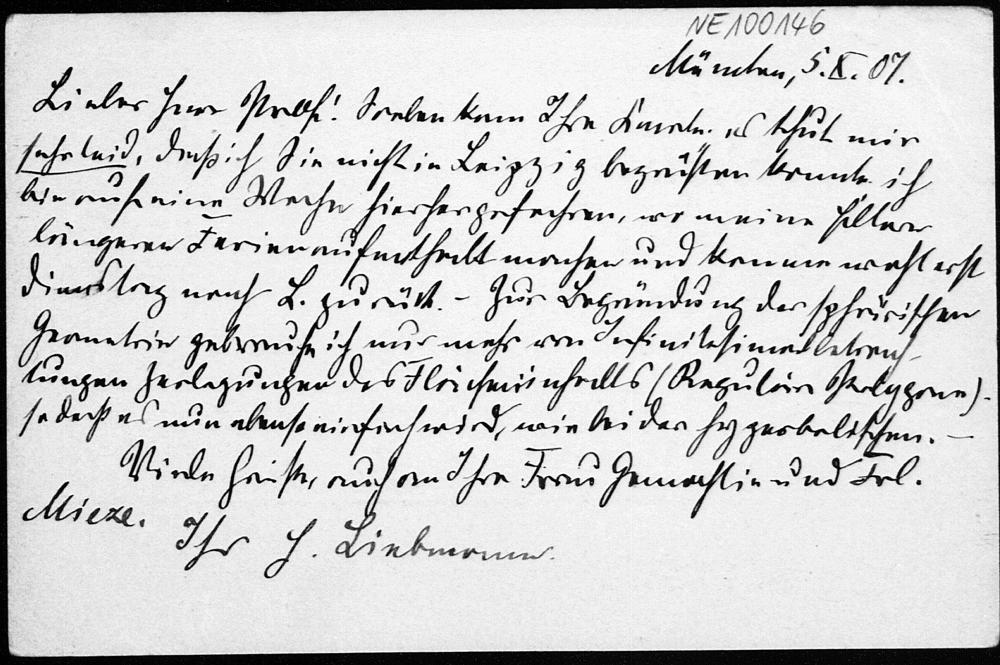 NE100146
München, 5.X.07.
Lieber Herr Prof! Soeben kam Ihre Karte. es thut mir
sehr leid, daß ich Sie nicht in Leipzig begrüßen konnte. ich
bin auf eine Woche hierher gefahren, wo meine Eltern
längeren Ferienaufenthalt machen und komme wohl erst
Dienstag nach L. zurück. – Zur Begründung der sphärischen
Geometrie gebrauche ich nur mehr von Infinitesimalbetrach-
tungen Zerlegungen des Flächeninhalts (Reguläre Polygone).
sodaß es nun ebenso einfach wird, wie bei der hyperbolischen. –
Viele Grüße, auch an Ihre Frau Gemahlin und Frl.
Mieze.
Ihr H. Liebmann.